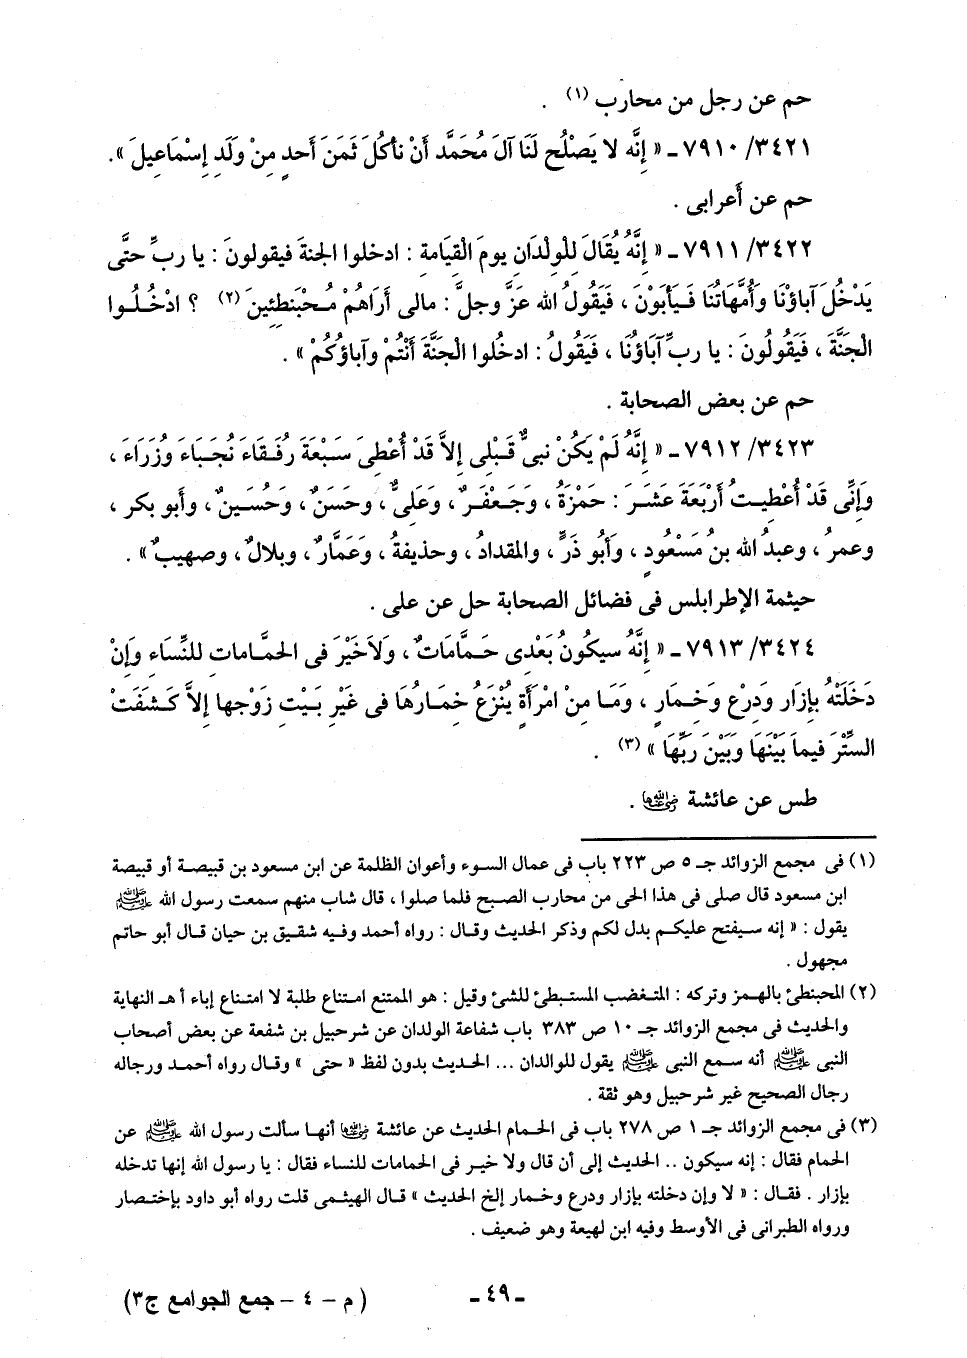 حم عن رجل من محارب (١) .
٧٩١٠/٣٤٢١ ـ « إِنَّه لا يَصْلُح لَنَا آلَ مُحَمَّد أَنْ نأكُلَ ثَمَنَ أَحدٍ مِنْ وَلَدِ إِسْمَاعِيلَ ».
حم عن أعرابى .
٧٩١١/٣٤٢٢ ـ « إِنَّهُ يُقَالَ لِلْوِلْدَانِ يومَ الْقِيَامَةِ : ادخلوا الجنةَ فيقولونَ : يا ربِّ حتَّى
يَدْخُلَ آباؤنَا وَأُمَّهَاتُنَا فَيَأبَوْنَ ، فَيَقُولُ الله عَزَّ وجلَّ : مالى أَرَاهُمْ مُحْبَنطئِينَ (٢) ؟ ادْخُلُوا
الْجَنَّةَ ، فَيَقُولُونَ : يا ربِّ آبَاؤُنَا ، فَيَقُولُ : ادخُلوا الْجَنَّةَ أَنْتُمْ وآباؤُكُمْ » .
حم عن بعض الصحابة .
٧٩١٢/٣٤٢٣ ـ « إِنَّهُ لَمْ يَكُنْ نبىٌّ قَبْلِى إِلاَّ قَدْ أُعْطِىَ سَبْعَةَ رُفَقَاءَ نُجَبَاءَ وُزَرَاءَ ،
وَإِنِّى قَدْ أُعْطِيتُ أَرْبَعَةَ عَشَرَ : حَمْزَةُ ، وَجَعْفَرٌ ، وَعَلىٌّ ، وحَسَنٌ ، وَحُسَينٌ ، وأَبو بكر ،
وعمرُ ، وعبدُ الله بنُ مَسْعُودٍ ، وَأَبُو ذَرٍّ ، والمقدادُ ، وحذيفةُ ، وَعَمَّارٌ ، وبلالٌ ، وصهيبٌ » .
حيثمة الإطرابلس فى فضائل الصحابة حل عن على .
٧٩١٣/٣٤٢٤ ـ « إِنَّهُ سيكونُ بَعْدِى حَمَّامَاتٌ ، وَلاَخَيْرَ فى الحمَّامات للنِّسَاءِ وإِنْ
دَخَلَتْهُ بِإِزَارٍ وَدِرْعٍ وَخِمارٍ ، وَمَا مِنْ امْرَأَةٍ يُنْزَعُ خِمَارُهَا فِى غَيْرِ بَيْتِ زَوْجها إِلاَّ كَشَفَتْ
السِّتْرَ فيماَ بَيْنَهَا وَبَيْنَ رَبِّهَا » (٣) .
طس عن عائشة رضي الله عنها .
(١) فى مجمع الزوائد جـ ٥ ص ٢٢٣ باب فى عمال السوء وأعوان الظلمة عن ابن مسعود بن قبيصة أو قبيصة
ابن مسعود قال صلى فى هذا الحى من محارب الصبح فلما صلوا ، قال شاب منهم سمعت رسول الله ﷺ
يقول : « إنه سيفتح عليكم بدل لكم وذكر الحديث وقال : رواه أحمد وفيه شقيق بن حيان قال أبو حاتم
مجهول .
(٢) المحبنطئ بالهمز وتركه : المتغضب المستبطئ للشئ وقيل : هو الممتنع امتناع طلبة لا امتناع إباء أ هـ النهاية
والحديث فى مجمع الزوائد جـ ١٠ ص ٣٨٣ باب شفاعة الولدان عن شرحبيل بن شفعة عن بعض أصحاب
النبى ﷺ أنه سمع النبى ﷺ يقول للوالدان ... الحديث بدون لفظ « حتى » وقال رواه أحمد ورجاله
رجال الصحيح غير شرحبيل وهو ثقة .
(٣) فى مجمع الزوائد جـ ١ ص ٢٧٨ باب فى الحمام الحديث عن عائشة رضي الله عنها أنها سألت رسول الله ﷺ عن
الحمام فقال : إنه سيكون .. الحديث إلى أن قال ولا خير فى الحمامات للنساء فقال : يا رسول الله إنها تدخله
بإزار . فقال : « لا وإن دخلته بإزار ودرع وخمار إلخ الحديث » قال الهيثمى قلت رواه أبو داود بإختصار
ورواه الطبرانى فى الأوسط وفيه ابن لهيعة وهو ضعيف .
ـ ٤٩ ـ
( م – ٤ – جمع الجوامع ج٣ )